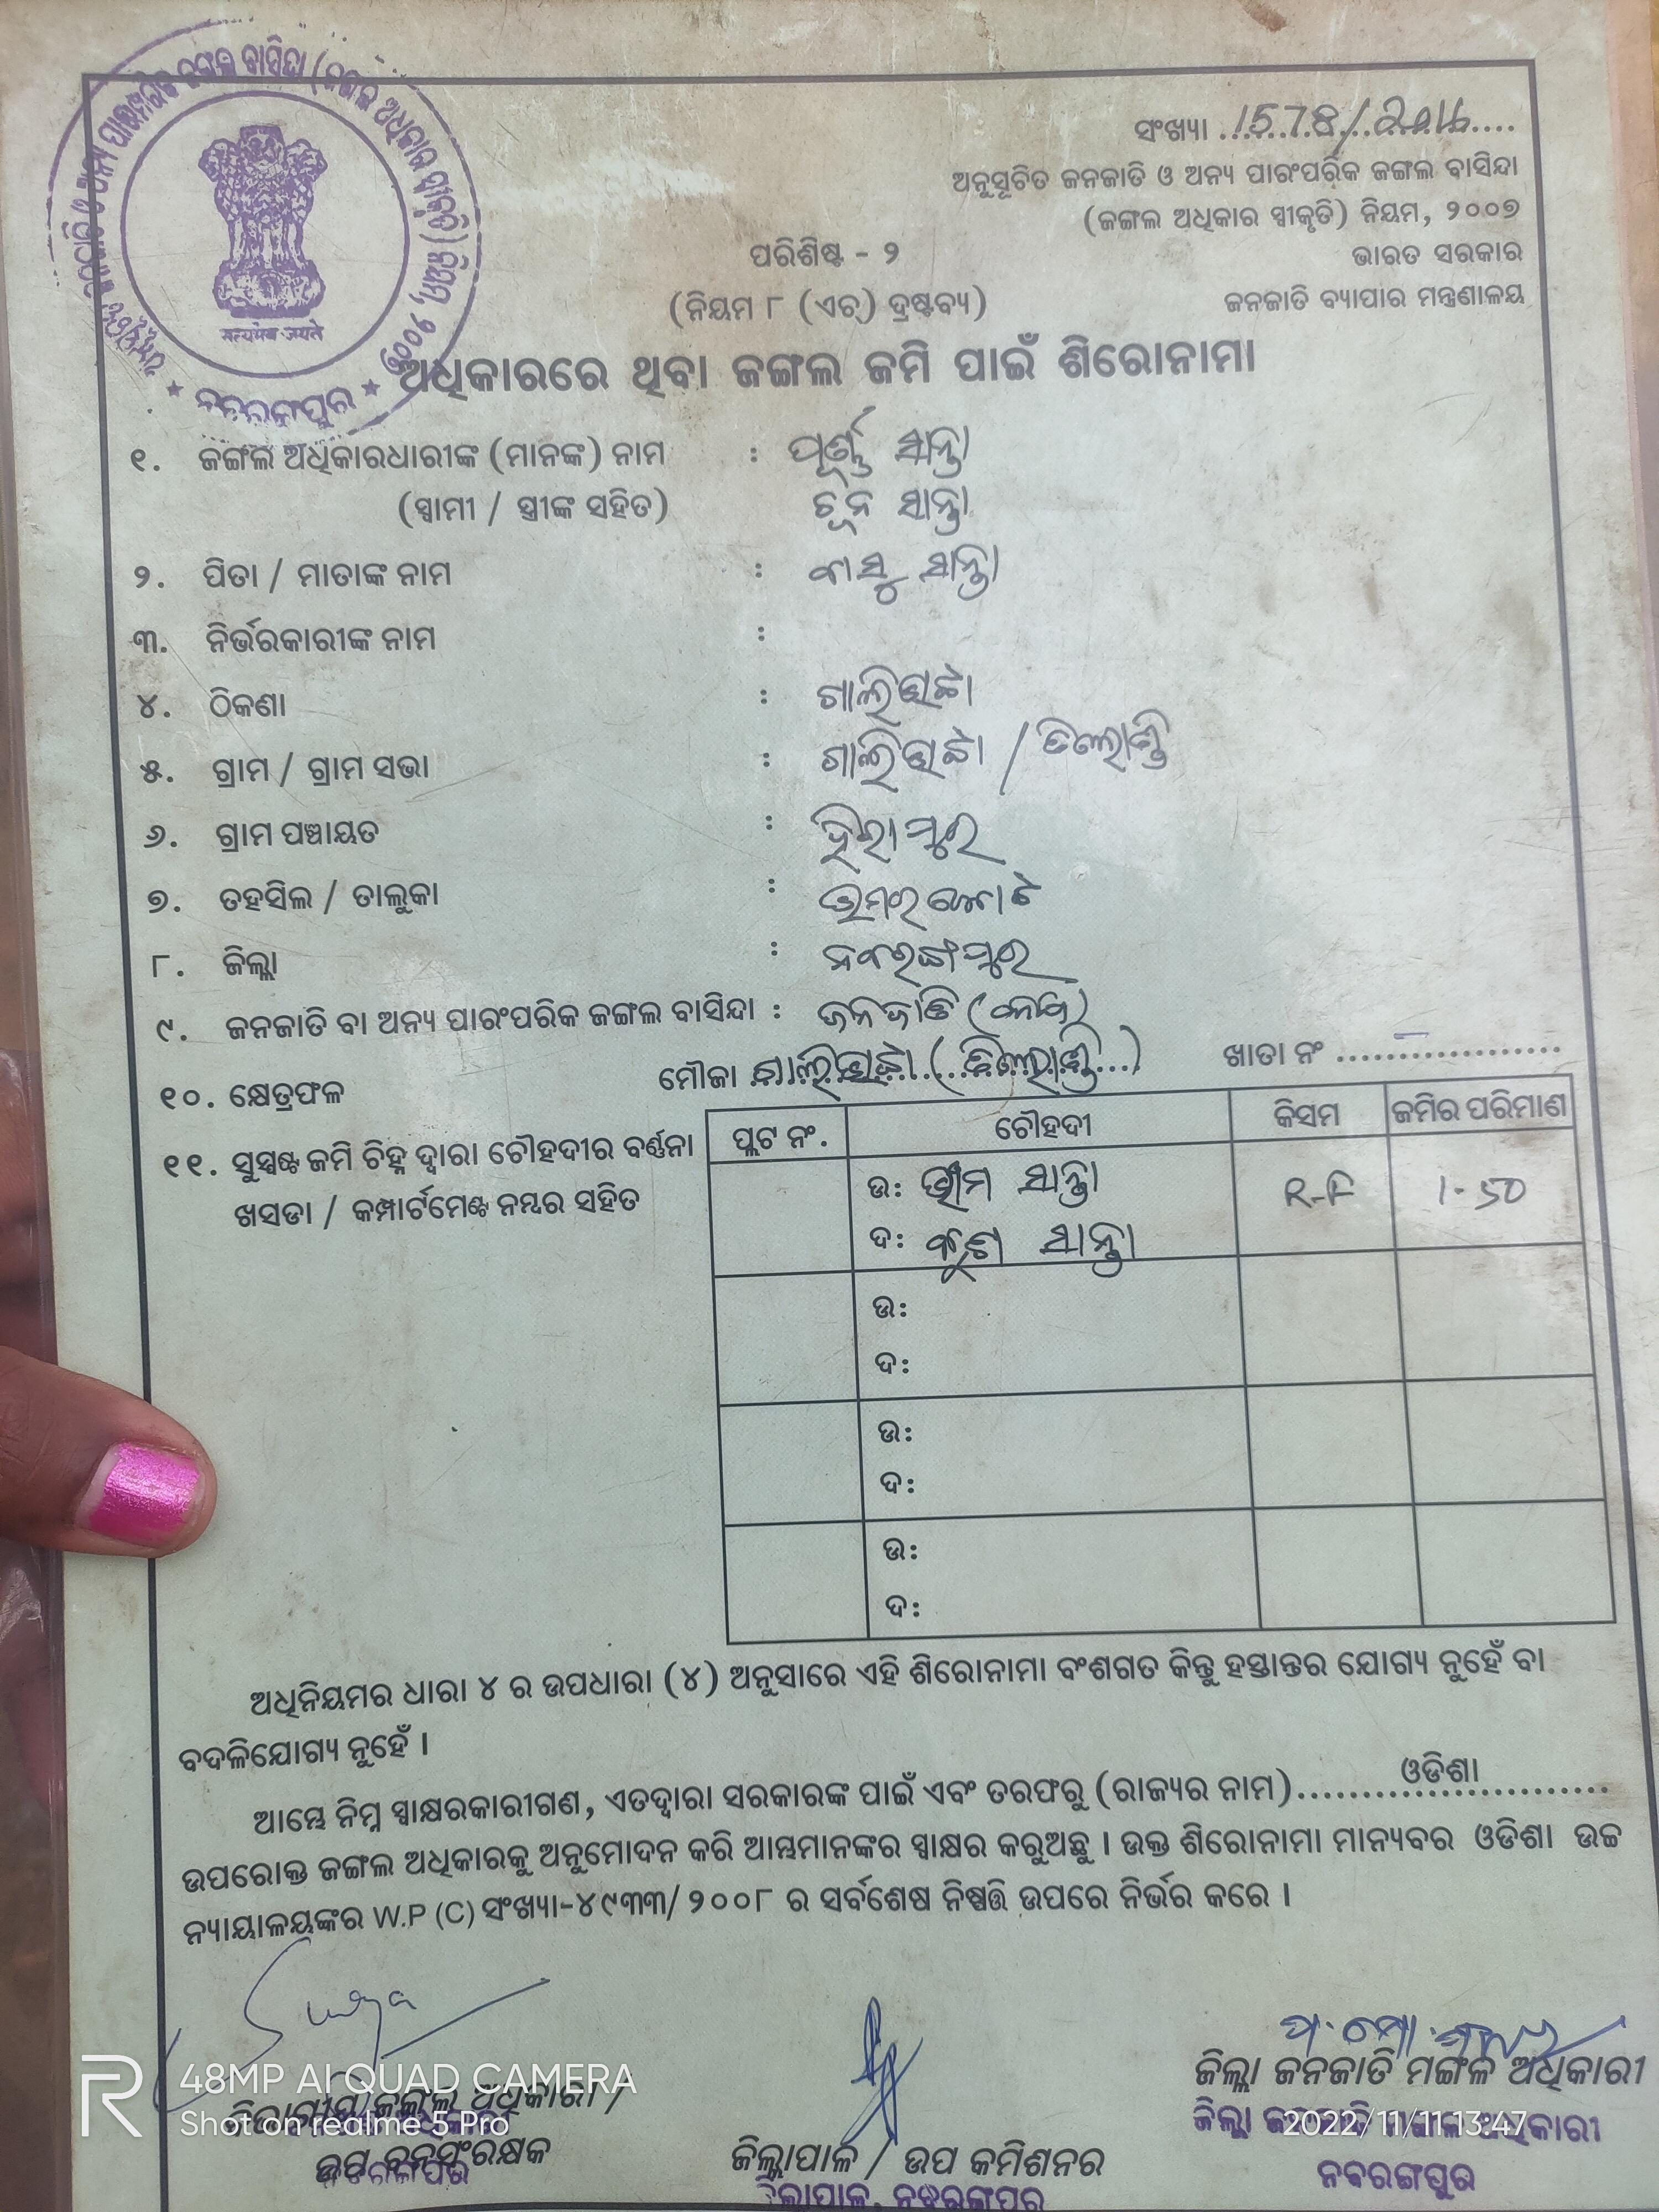 ସଂଖ୍ୟା ..1578/2016....
ଅନୁସୂଚିତ ଜନଜାତି ଓ ଅନ୍ୟ ପାରଂପରିକ ଜଙ୍ଗଲ ବାସିନ୍ଦା
(ଜଙ୍ଗଲ ଅଧିକାର ସ୍ୱୀକୃତି) ନିୟମ, ୨୦୦୭
ପରିଶିଷ୍ଟ - ୨
ଭାରତ ସରକାର
(ନିୟମ ୮ (ଏଚ୍) ଦ୍ରଷ୍ଟବ୍ୟ)
ଜନଜାତି ବ୍ୟାପାର ମନ୍ତ୍ରଣାଳୟ
सत्यमेव जयते
ନବରଙ୍ଗପୁର
ଅଧିକାରରେ ଥିବା ଜଙ୍ଗଲ ଜମି ପାଇଁ ଶିରୋନାମା
୧. ଜଙ୍ଗଲ ଅଧିକାରଧାରୀଙ୍କ (ମାନଙ୍କ) ନାମ : ପୂର୍ଣ୍ଣ ସାନ୍ତା
(ସ୍ୱାମୀ / ସ୍ତ୍ରୀଙ୍କ ସହିତ) ଚୂନ ସାନ୍ତା
୨. ପିତା / ମାତାଙ୍କ ନାମ : ବାସୁ ସାନ୍ତା
୩. ନିର୍ଭରକାରୀଙ୍କ ନାମ :
୪. ଠିକଣା : ଗାଲିଭଟା
୫. ଗ୍ରାମ / ଗ୍ରାମ ସଭା : ଗାଲିଭଟା /
୬. ଗ୍ରାମ ପଞ୍ଚାୟତ : ହିରାପୁର
୭. ତହସିଲ / ତାଲୁକା : ଉମରକୋଟ
୮. ଜିଲ୍ଲା : ନବରଙ୍ଗପୁର
୯. ଜନଜାତି ବା ଅନ୍ୟ ପାରଂପରିକ ଜଙ୍ଗଲ ବାସିନ୍ଦା : ଜନଜାତି
୧୦. କ୍ଷେତ୍ରଫଳ ମୌଜା ଗାଲିଭଟା ଖାତା ନଂ ..................
୧୧. ସୁସ୍ପଷ୍ଟ ଜମି ଚିହ୍ନ ଦ୍ୱାରା ଚୌହଦୀର ବର୍ଣ୍ଣନା
ଖସଡା / କମ୍ପାର୍ଟମେଣ୍ଟ ନମ୍ବର ସହିତ
ପ୍ଲଟ ନଂ. ଚୌହଦୀ କିସମ ଜମିର ପରିମାଣ
ଉ: ଭୀମ ସାନ୍ତା R-F 1-50
ଦ: ସାନ୍ତା
ଉ:
ଦ:
ଉ:
ଦ:
ଉ:
ଦ:
ଅଧିନିୟମର ଧାରା ୪ ର ଉପଧାରା (୪) ଅନୁସାରେ ଏହି ଶିରୋନାମା ବଂଶଗତ କିନ୍ତୁ ହସ୍ତାନ୍ତର ଯୋଗ୍ୟ ନୁହେଁ ବା
ବଦଳିଯୋଗ୍ୟ ନୁହେଁ ।
ଆମ୍ଭେ ନିମ୍ନ ସ୍ୱାକ୍ଷରକାରୀଗଣ, ଏତଦ୍ୱାରା ସରକାରଙ୍କ ପାଇଁ ଏବଂ ତରଫରୁ (ରାଜ୍ୟର ନାମ)........ଓଡିଶା..........
ଉପରୋକ୍ତ ଜଙ୍ଗଲ ଅଧିକାରକୁ ଅନୁମୋଦନ କରି ଆମ୍ଭମାନଙ୍କର ସ୍ୱାକ୍ଷର କରୁଅଛୁ । ଉକ୍ତ ଶିରୋନାମା ମାନ୍ୟବର ଓଡିଶା ଉଚ୍ଚ
ନ୍ୟାୟାଳୟଙ୍କର W.P (C) ସଂଖ୍ୟା-୪୯୩୩/୨୦୦୮ ର ସର୍ବଶେଷ ନିଷ୍ପତ୍ତି ଉପରେ ନିର୍ଭର କରେ ।
ଜିଲ୍ଲା ଜନଜାତି ମଙ୍ଗଳ ଅଧିକାରୀ
ଜିଲ୍ଲା ଜନଜାତି ମଙ୍ଗଳ ଅଧିକାରୀ
ନବରଙ୍ଗପୁର
ଉପ ବନସଂରକ୍ଷକ
ଜିଲ୍ଲାପାଳ / ଉପ କମିଶନର
ଜିଲ୍ଲାପାଳ, ନବରଙ୍ଗପୁର
48MP AI QUAD CAMERA
Shot on realme 5 Pro
2022/11/11 13:47